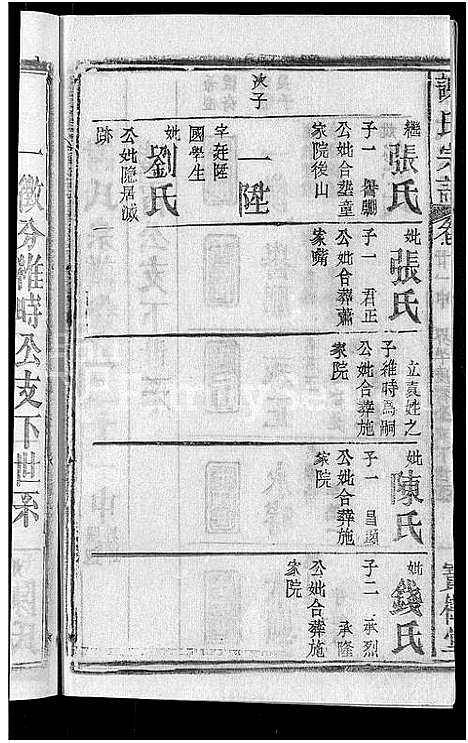 氏宗譜
繼張氏
子一
公妣合塟童
家院後山
次子
一陞
字廷陞
國學生
妣劉氏
公妣隐居滅
跡
妣張氏
子一 君正
公妣合葬蕭
家嘴
立貢姓之
子維時爲嗣
公妣合葬施
家院
妣陳氏
子一 昌顯
公妣合葬施
家院
妣錢氏
子二 承烈 承隆
公妣合葬施
家院
一徵分維時公支下世系